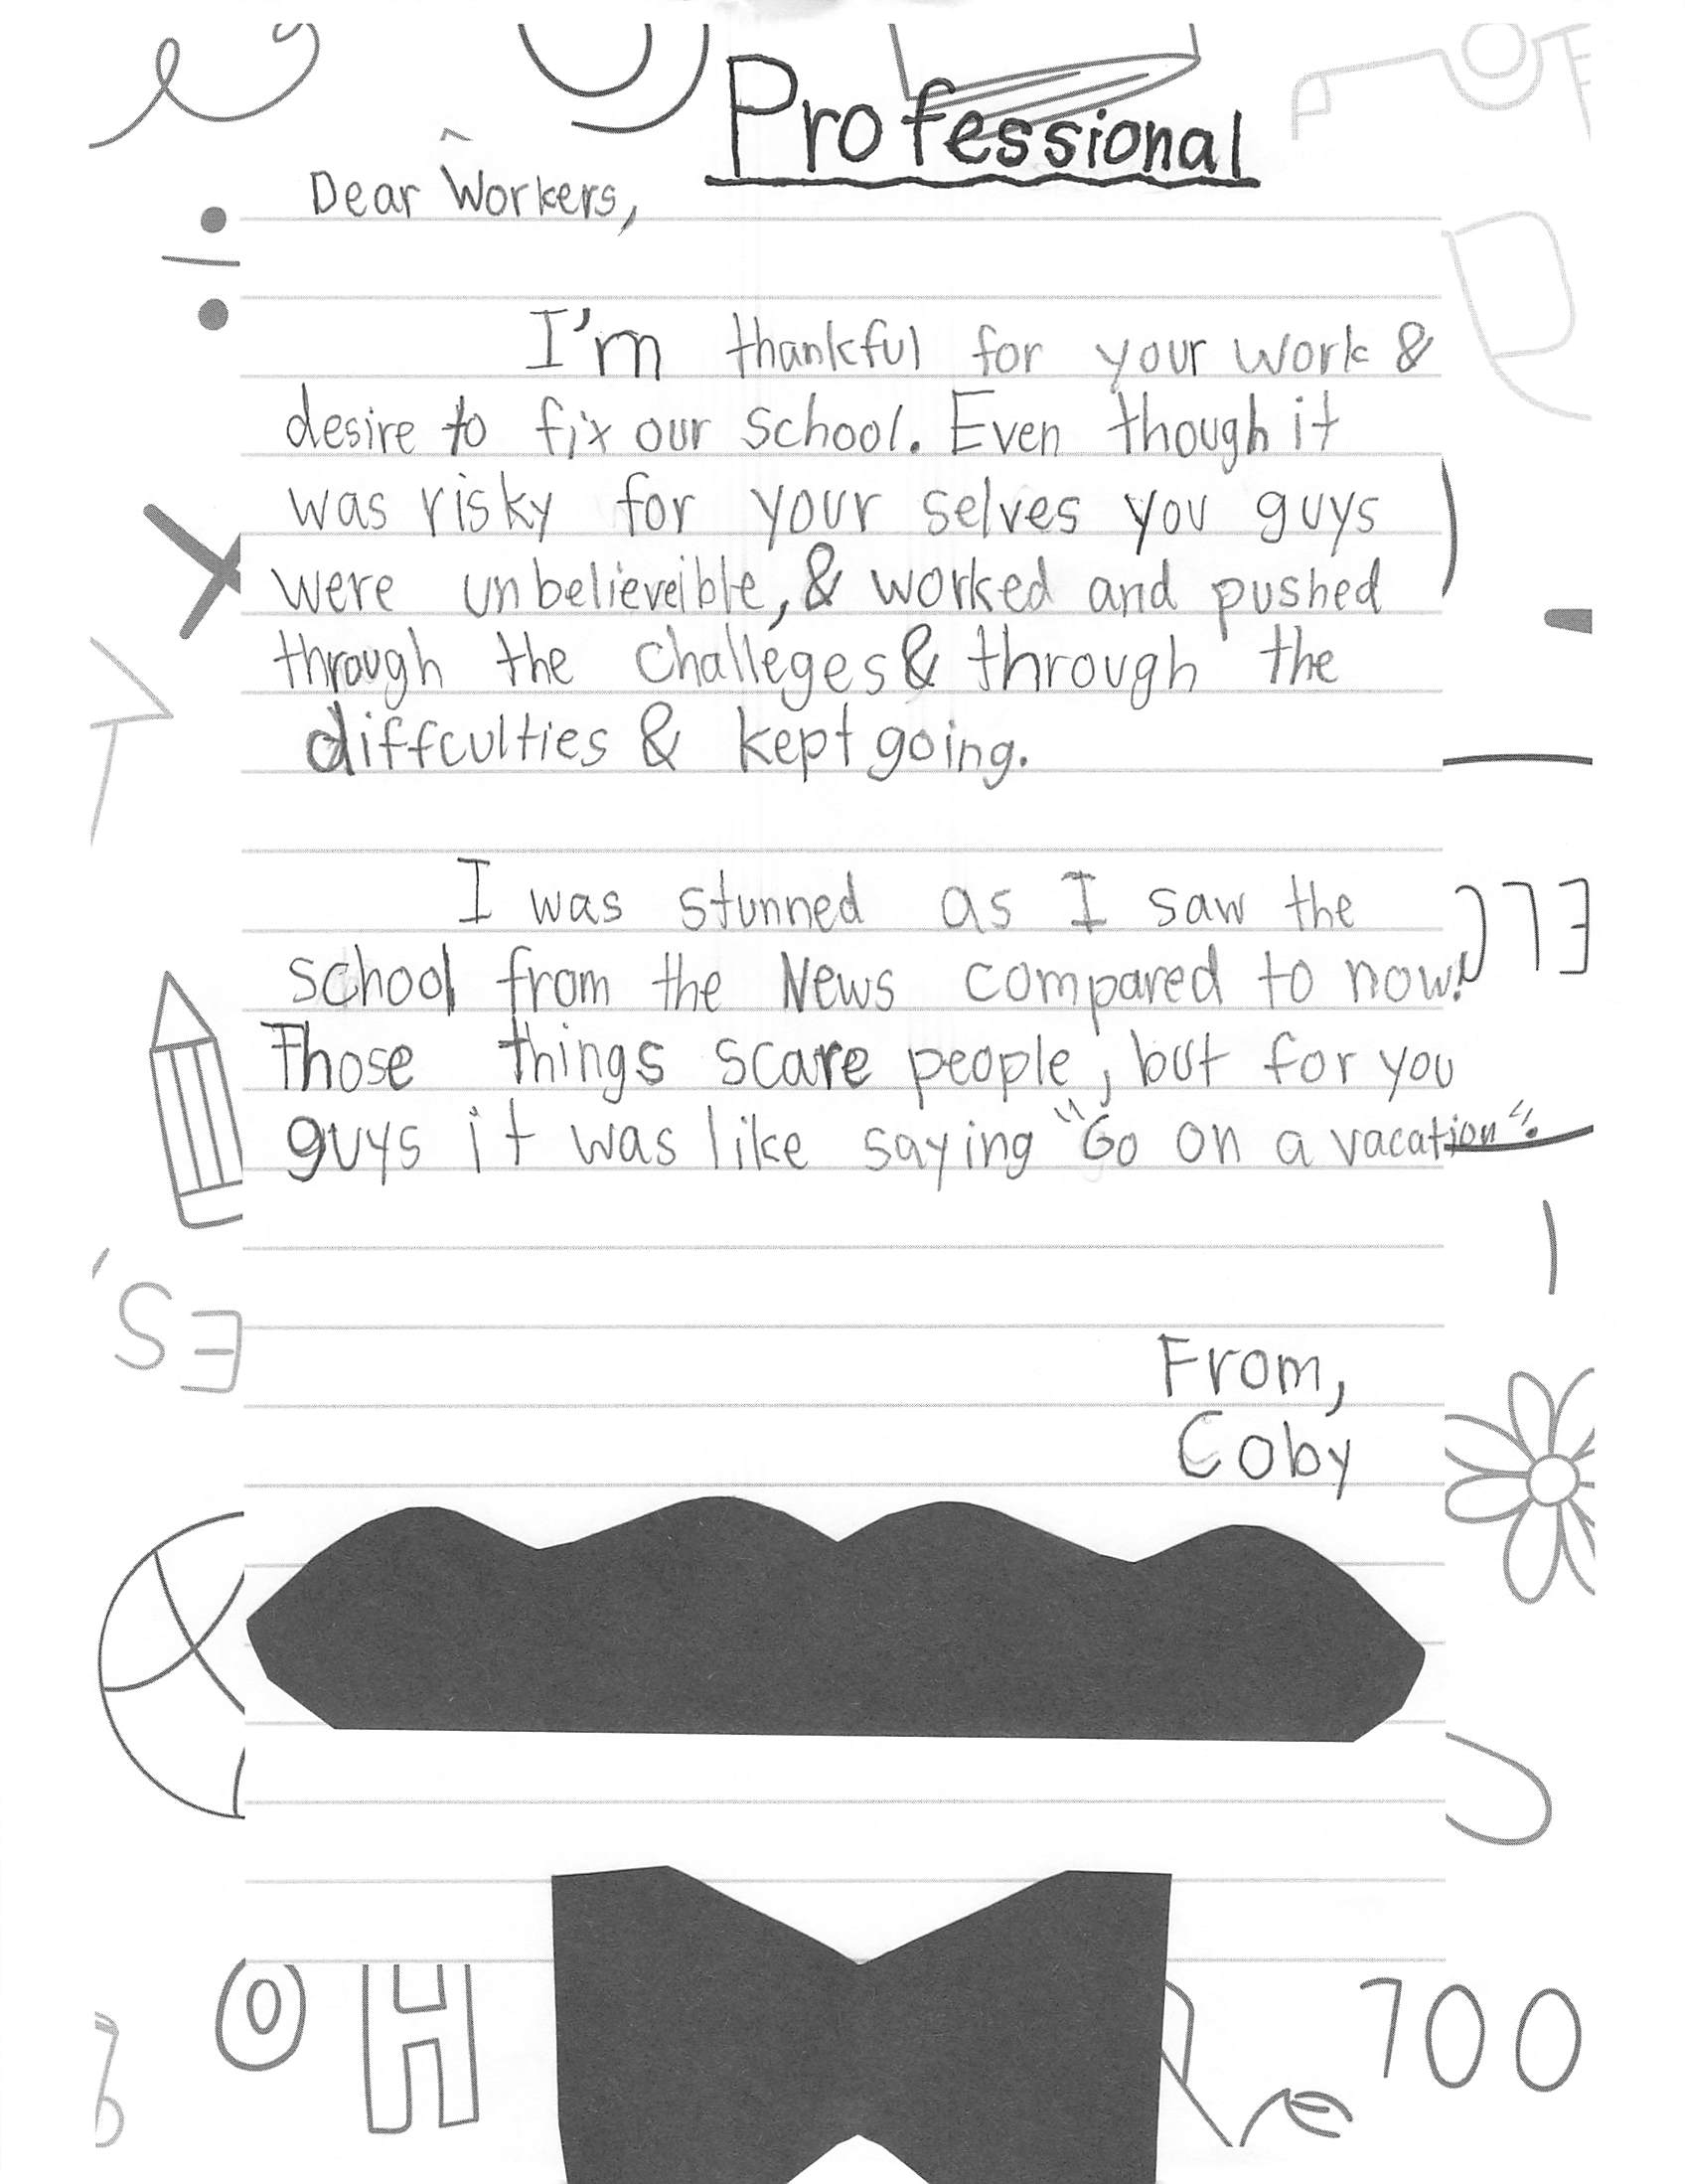 Professional
Dear ^Workers,
I'm thankful for your work &
desire to fix our school. Even though it
was risky for your selves you guys
were unbelieveible, & worked and pushed
through the challeges & through the
diffculties & kept going.
I was stunned as I saw the
school from the News compared to now!
Those things scare people, but for you
guys it was like saying "Go on a vacation".
From,
Coby